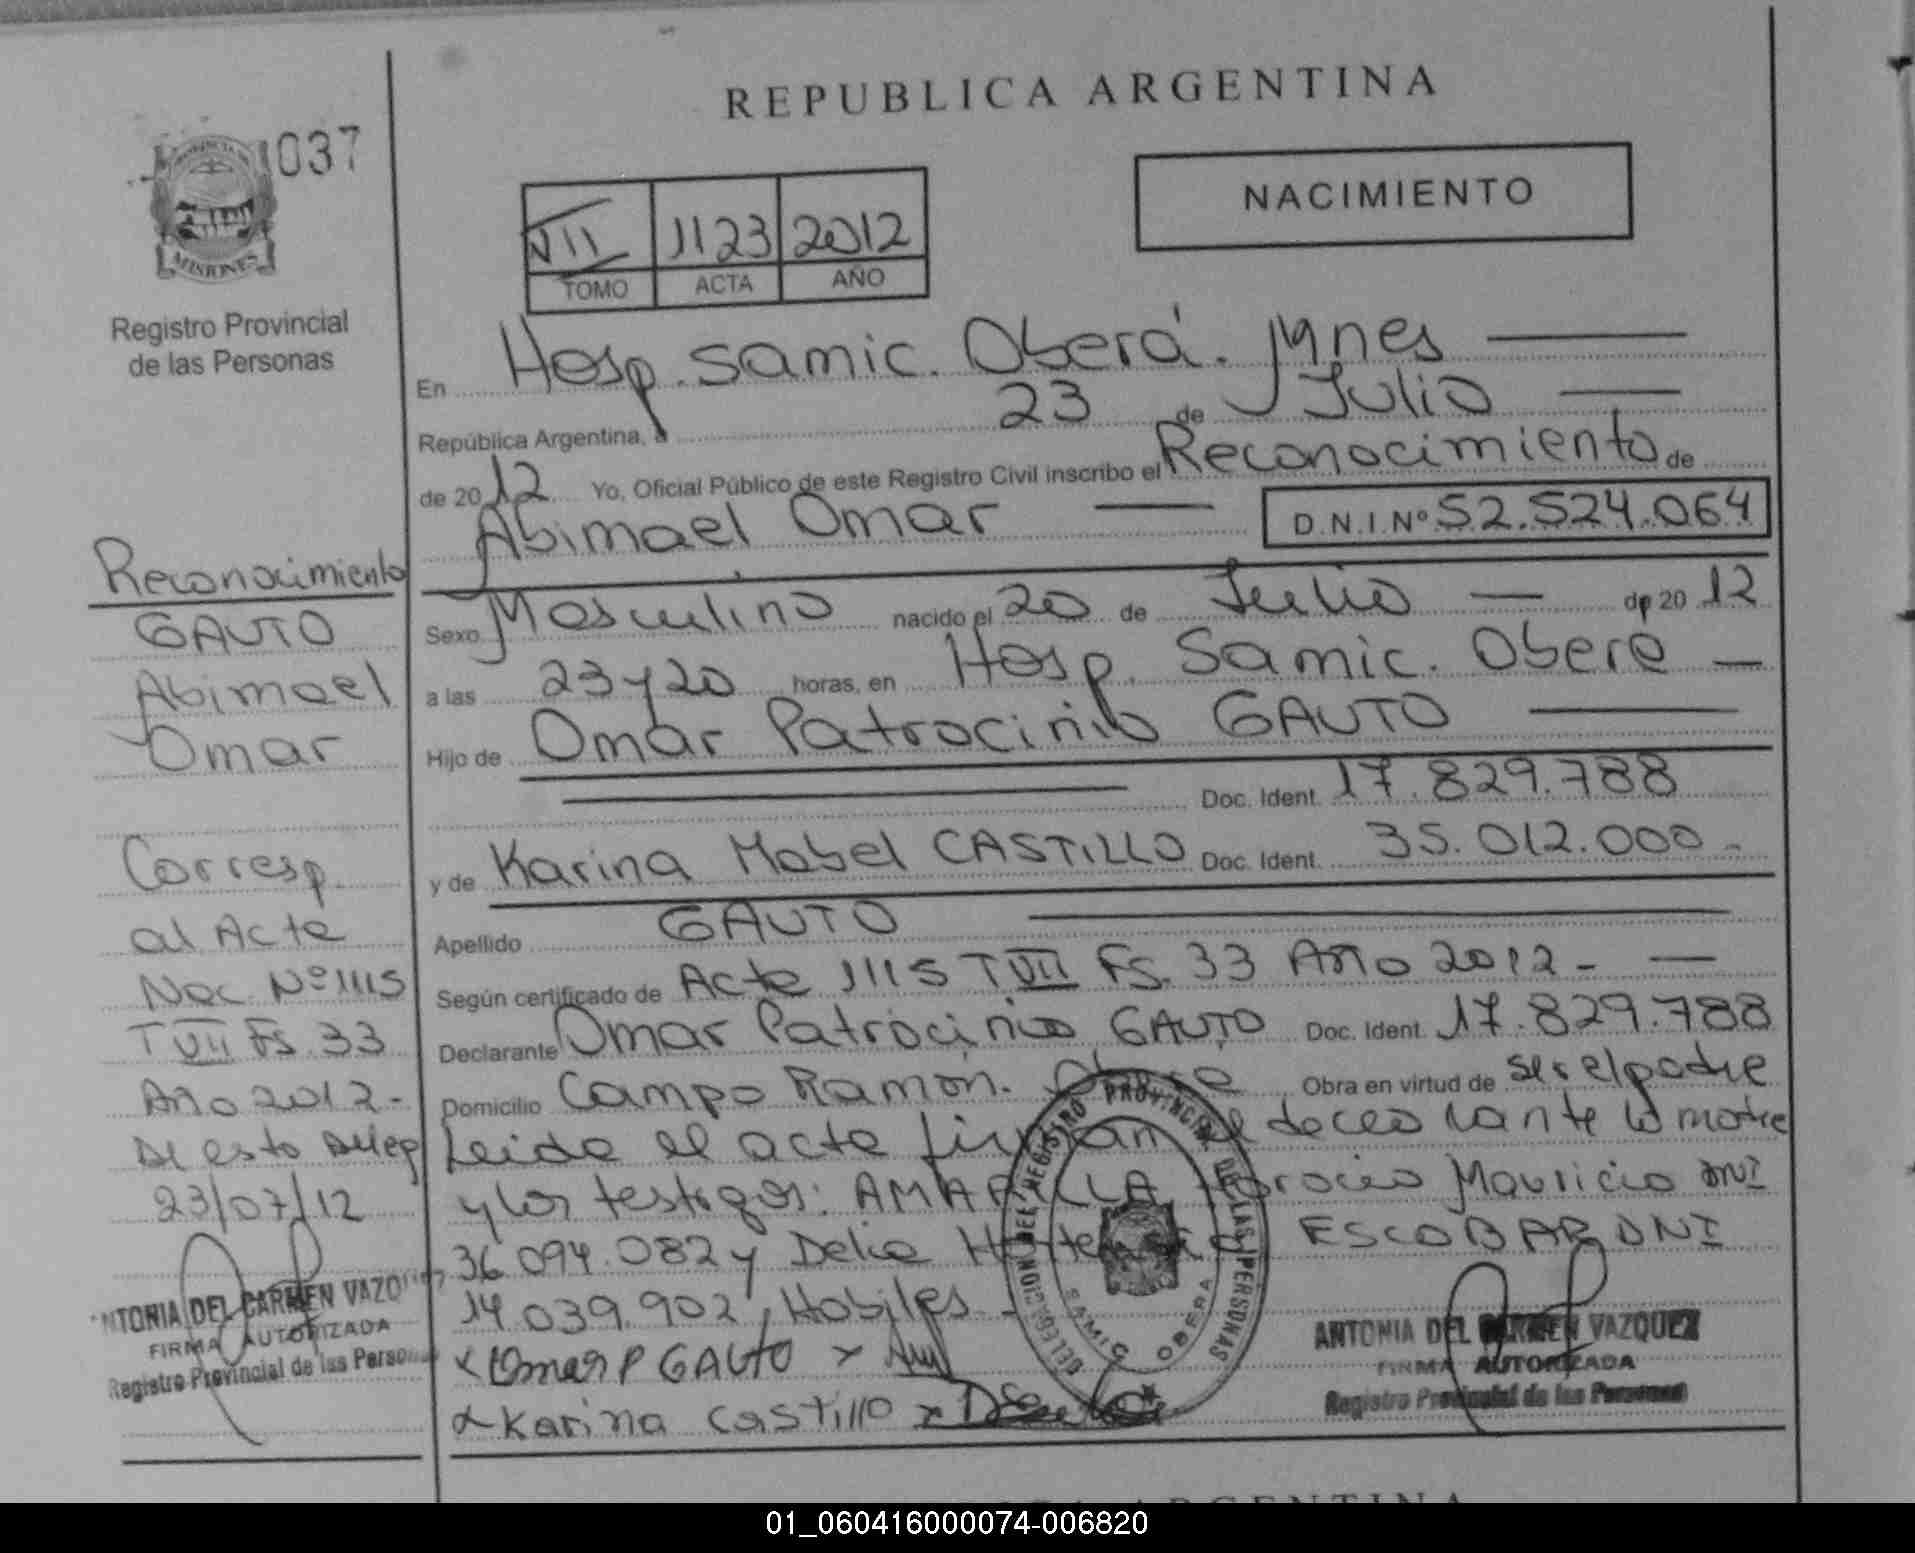 REPUBLICA ARGENTINA
037
NACIMIENTO
VII 1123 2012
TOMO ACTA AÑO
MISIONES
Registro Provincial
de las Personas
En Hosp. Samic. Oberá. Mnes
República Argentina, a 23 de Julio
de 2012 Yo, Oficial Público de este Registro Civil inscribo el Reconocimiento de
Abimael Omar D.N.I.Nº 52.524.064
Sexo Masculino nacido el 20 de Julio de 2012
a las 23 y 20 horas, en Hosp. Samic. Oberá
Hijo de Omar Patrocinio GAUTO
Doc. Ident. 17.829.788
y de Karina Mabel CASTILLO Doc. Ident. 35.012.000.-
Apellido GAUTO
Según certificado de Acta 1115 T VII Fs. 33 Año 2012.-
Declarante Omar Patrocinio GAUTO Doc. Ident. 17.829.788
Domicilio Campo Ramón. Oberá Obra en virtud de ser el padre
Leida el acta firman el declarante la madre
y los testigos: AMARILLA Horacio Mauricio DNI
36.094.082 y Delia Hortensia ESCOBAR DNI
14.039.902, Habiles.-
x Omar P GAUTO x
x Karina Castillo x
DELEGACION DEL REGISTRO PROVINCIAL DE LAS PERSONAS
SAMIC OBERA
ANTONIA DEL CARMEN VAZQUEZ
FIRMA AUTORIZADA
Registro Provincial de las Personas
Reconocimiento
GAUTO
Abimael
Omar
Corresp.
al Acta
Nac. Nº 1115
T VII Fs 33
Año 2012.-
De esta Deleg
23/07/12
ANTONIA DEL CARMEN VAZQUEZ
FIRMA AUTORIZADA
Registro Provincial de las Personas
ARGENTINA
01_060416000074-006820